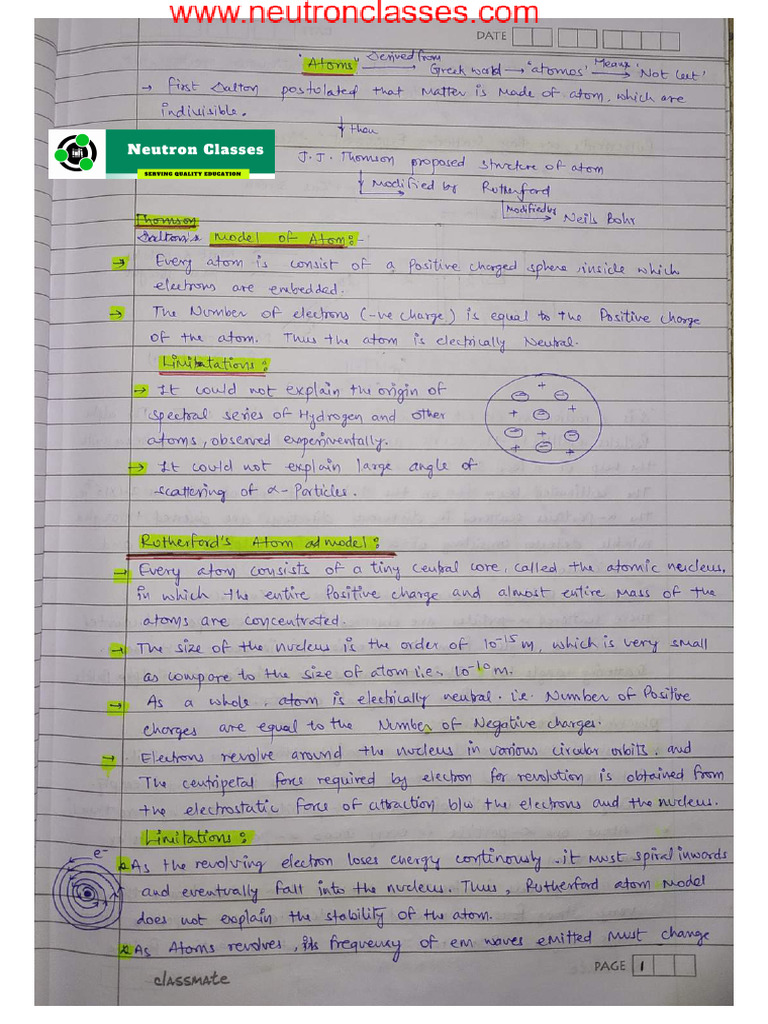 www.neutronclasses.com
DATE
"Atoms" Derived from Greek world → 'atomos' Means 'Not cut'
→ First Dalton postulated that matter is made of atom, which are
indivisible.
↓ than
Neutron Classes
SERVING QUALITY EDUCATION
J.J. Thomson proposed structure of atom
↓ Modified by Rutherford
↓ Modified by Neils Bohr
Thomson
Dalton's Model of Atom:-
→ Every atom is consist of a positive charged sphere, inside which
electrons are embedded.
→ The Number of electrons (-ve charge) is equal to the Positive charge
of the atom. Thus the atom is electrically Neutral.
Limitations:
→ It could not explain the origin of
spectral series of Hydrogen and other
atoms, observed experimentally.
→ It could not explain large angle of
scattering of α-Particles.
+
- -
+ - + +
- + -
+ - +
Rutherford's Atom ad model:
→ Every atom consists of a tiny central core, called the atomic nucleus,
in which the entire Positive charge and almost entire Mass of the
atoms are concentrated.
→ The size of the nucleus is the order of 10⁻¹⁵ m, which is very small
as compare to the size of atom i.e., 10⁻¹⁰ m.
→ As a whole, atom is electrically neutral. i.e. Number of Positive
charges are equal to the Number of Negative charges.
→ Electrons revolve around the nucleus in various circular orbits, and
The centripetal force required by electron for revolution is obtained from
the electrostatic force of attraction b/w the electrons and the nucleus.
Limitations:
e⁻
* As the revolving electron loses energy continously, it must spiral inwards
and eventually fall into the nucleus. Thus, Rutherford atom model
does not explain the stability of the atom.
* As Atoms revolves, its frequency of em waves emitted must change
classmate
PAGE 1